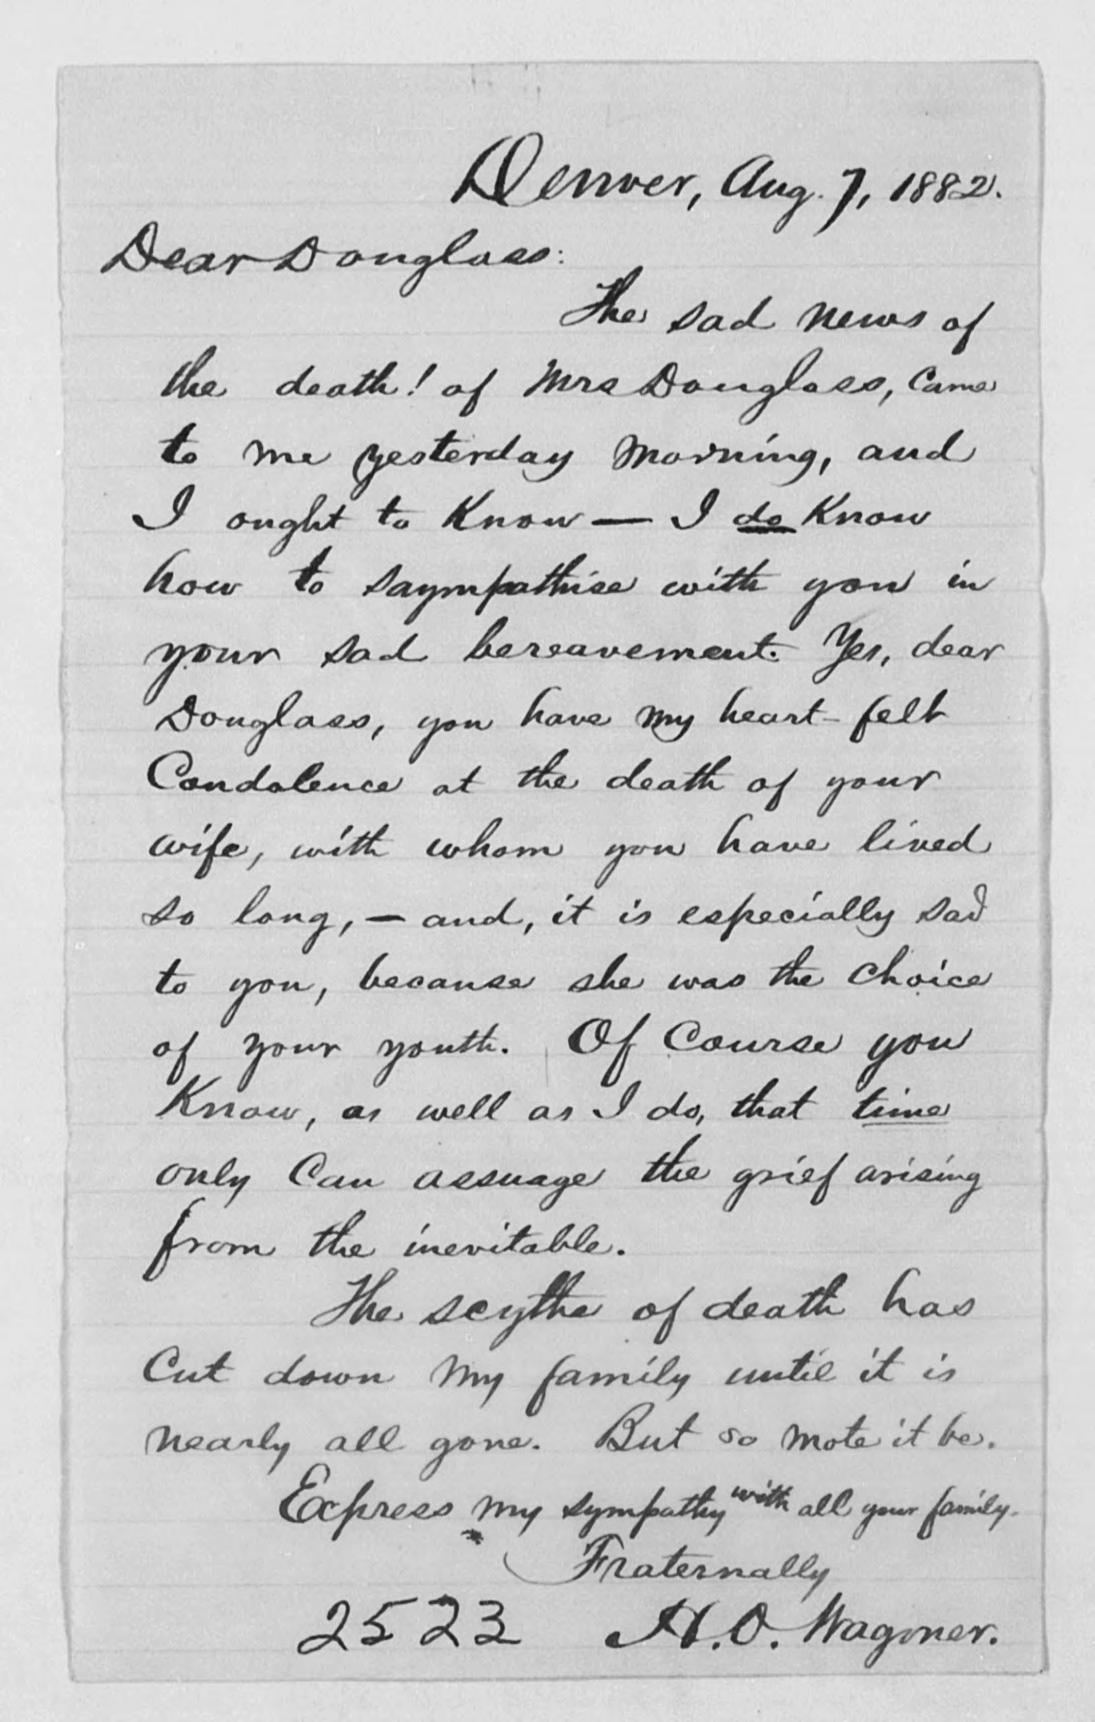 Denver, Aug. 7, 1882.
Dear Douglass:
The sad news of
the death! of Mrs Douglass, came
to me yesterday morning, and
I ought to know — I do know
how to saympathise with you in
your sad bereavement. Yes, dear
Douglass, you have my heart-felt
Condolence at the death of your
wife, with whom you have lived
so long, — and, it is especially sad
to you, because she was the choice
of your youth. Of Course you
Know, as well as I do, that time
only Can assuage the grief arising
from the inevitable.
The scythe of death has
Cut down my family until it is
nearly all gone. But so mote it be.
Express my sympathy with all your family.
Fraternally
2523 H. O. Wagoner.